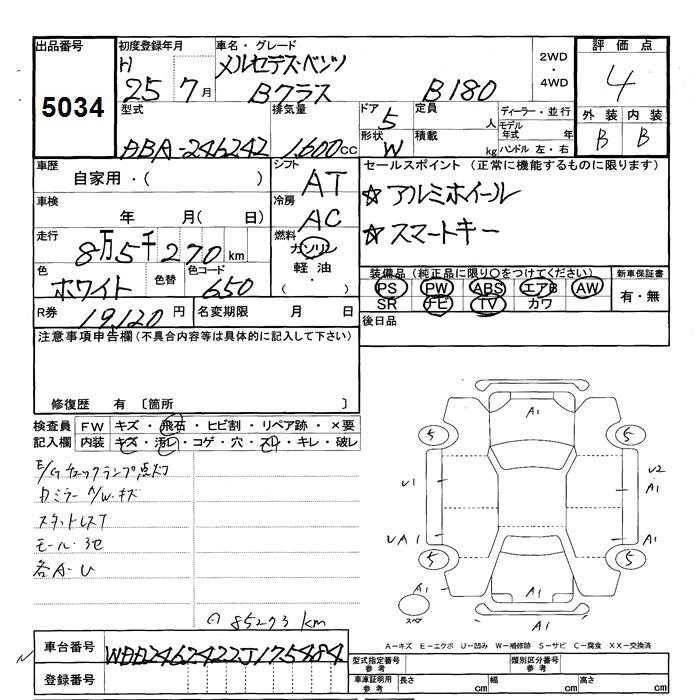 出品番号
5034
初度登録年月
H 25 7 月
車名・グレード
メルセデス・ベンツ
Bクラス B180
2WD
・
4WD
評価点
4
外装 内装
B B
型式
DBA-246242
排気量
1,600cc
ドア 5
形状 W
定員 人
積載 kg
ディーラー・並行
モデル年式 年
ハンドル 左・右
車歴
自家用・( )
シフト
AT
車検
年 月( 日)
冷房
AC
走行
8万5千270km
燃料
ガソリン
軽油
・( )
色
ホワイト
色替
色コード
650
R券 19,120円
名変期限 月 日
セールスポイント(正常に機能するものに限ります)
☆アルミホイール
☆スマートキー
装備品(純正品に限り〇をつけてください)
PS PW ABS エアB AW
SR ナビ TV カワ
新車保証書
有・無
後日品
注意事項申告欄(不具合内容等は具体的に記入して下さい)
修復歴 有〔箇所 〕
検査員
記入欄
FW キズ・飛石・ヒビ割・リペア跡・×要
内装 キズ・汚レ・コゲ・穴・スレ・キレ・破レ
E/Gチェックランプ点灯
カミラー A/W・キズ
スタットレスT
モール・3セ
各A-U
85273 km
A1
5
5
U1
U2
A1
UA1
A1
5
5
A1
A1
スペア
A1
A-キズ E-エクボ U-凹み W-補修跡 S-サビ C-腐食 XX-交換済
車台番号 WDD2462422J175484
登録番号
型式指定番号 参考
類別区分番号 参考
車庫証明用 参考
長さ cm 幅 cm 高さ cm